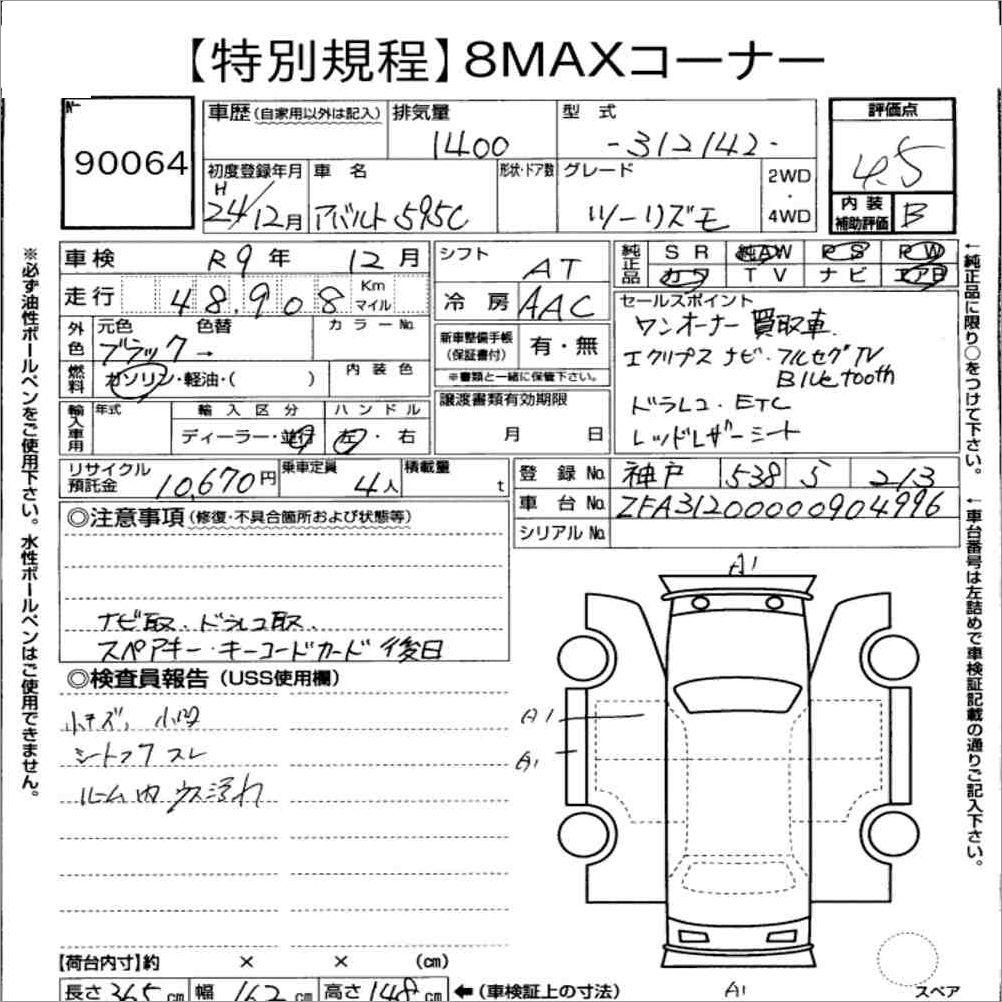 【特別規程】8MAXコーナー
No.
90064
車歴(自家用以外は記入)
排気量
1400
型式
-312142-
評価点
4.5
内装
補助評価
B
初度登録年月
H
24/12月
車名
アバルト595C
形状・ドア数
グレード
ツーリズモ
2WD
・
4WD
車検
R9年
12月
走行
48,908
Km
マイル
外色
元色
色替
カラーNo.
ブラック→
燃料
ガソリン・軽油・( )
内装色
輸入車用
年式
輸入区分
ハンドル
ディーラー・並行
左・右
シフト
AT
冷房
AAC
新車整備手帳
(保証書付)
有・無
※書類と一緒に保管下さい。
譲渡書類有効期限
月 日
純正品
SR 純AW PS PW
カワ TV ナビ エアB
セールスポイント
ワンオーナー 買取車.
エクリプス ナビ・フルセグTV
Bluetooth
ドラレコ・ETC
レッドレザーシート
リサイクル
預託金
10,670円
乗車定員
4人
積載量
t
登録No.
神戸 538 ら 213
車台No.
ZFA31200000904996
シリアルNo.
◎注意事項(修復・不具合箇所および状態等)
ナビ取. ドラレコ取.
スペアキー・キーコードカード後日
◎検査員報告(USS使用欄)
小キズ, 小凹
シートスレ
ルーム内 ウス汚れ
A1
A1
A1
【荷台内寸】約 × × (cm)
長さ365cm 幅162cm 高さ148cm ←(車検証上の寸法)
A1
スペア
※必ず油性ボールペンをご使用下さい。水性ボールペンはご使用できません。
←純正品に限り○をつけて下さい。
←車台番号は左詰めで車検証記載の通りご記入下さい。